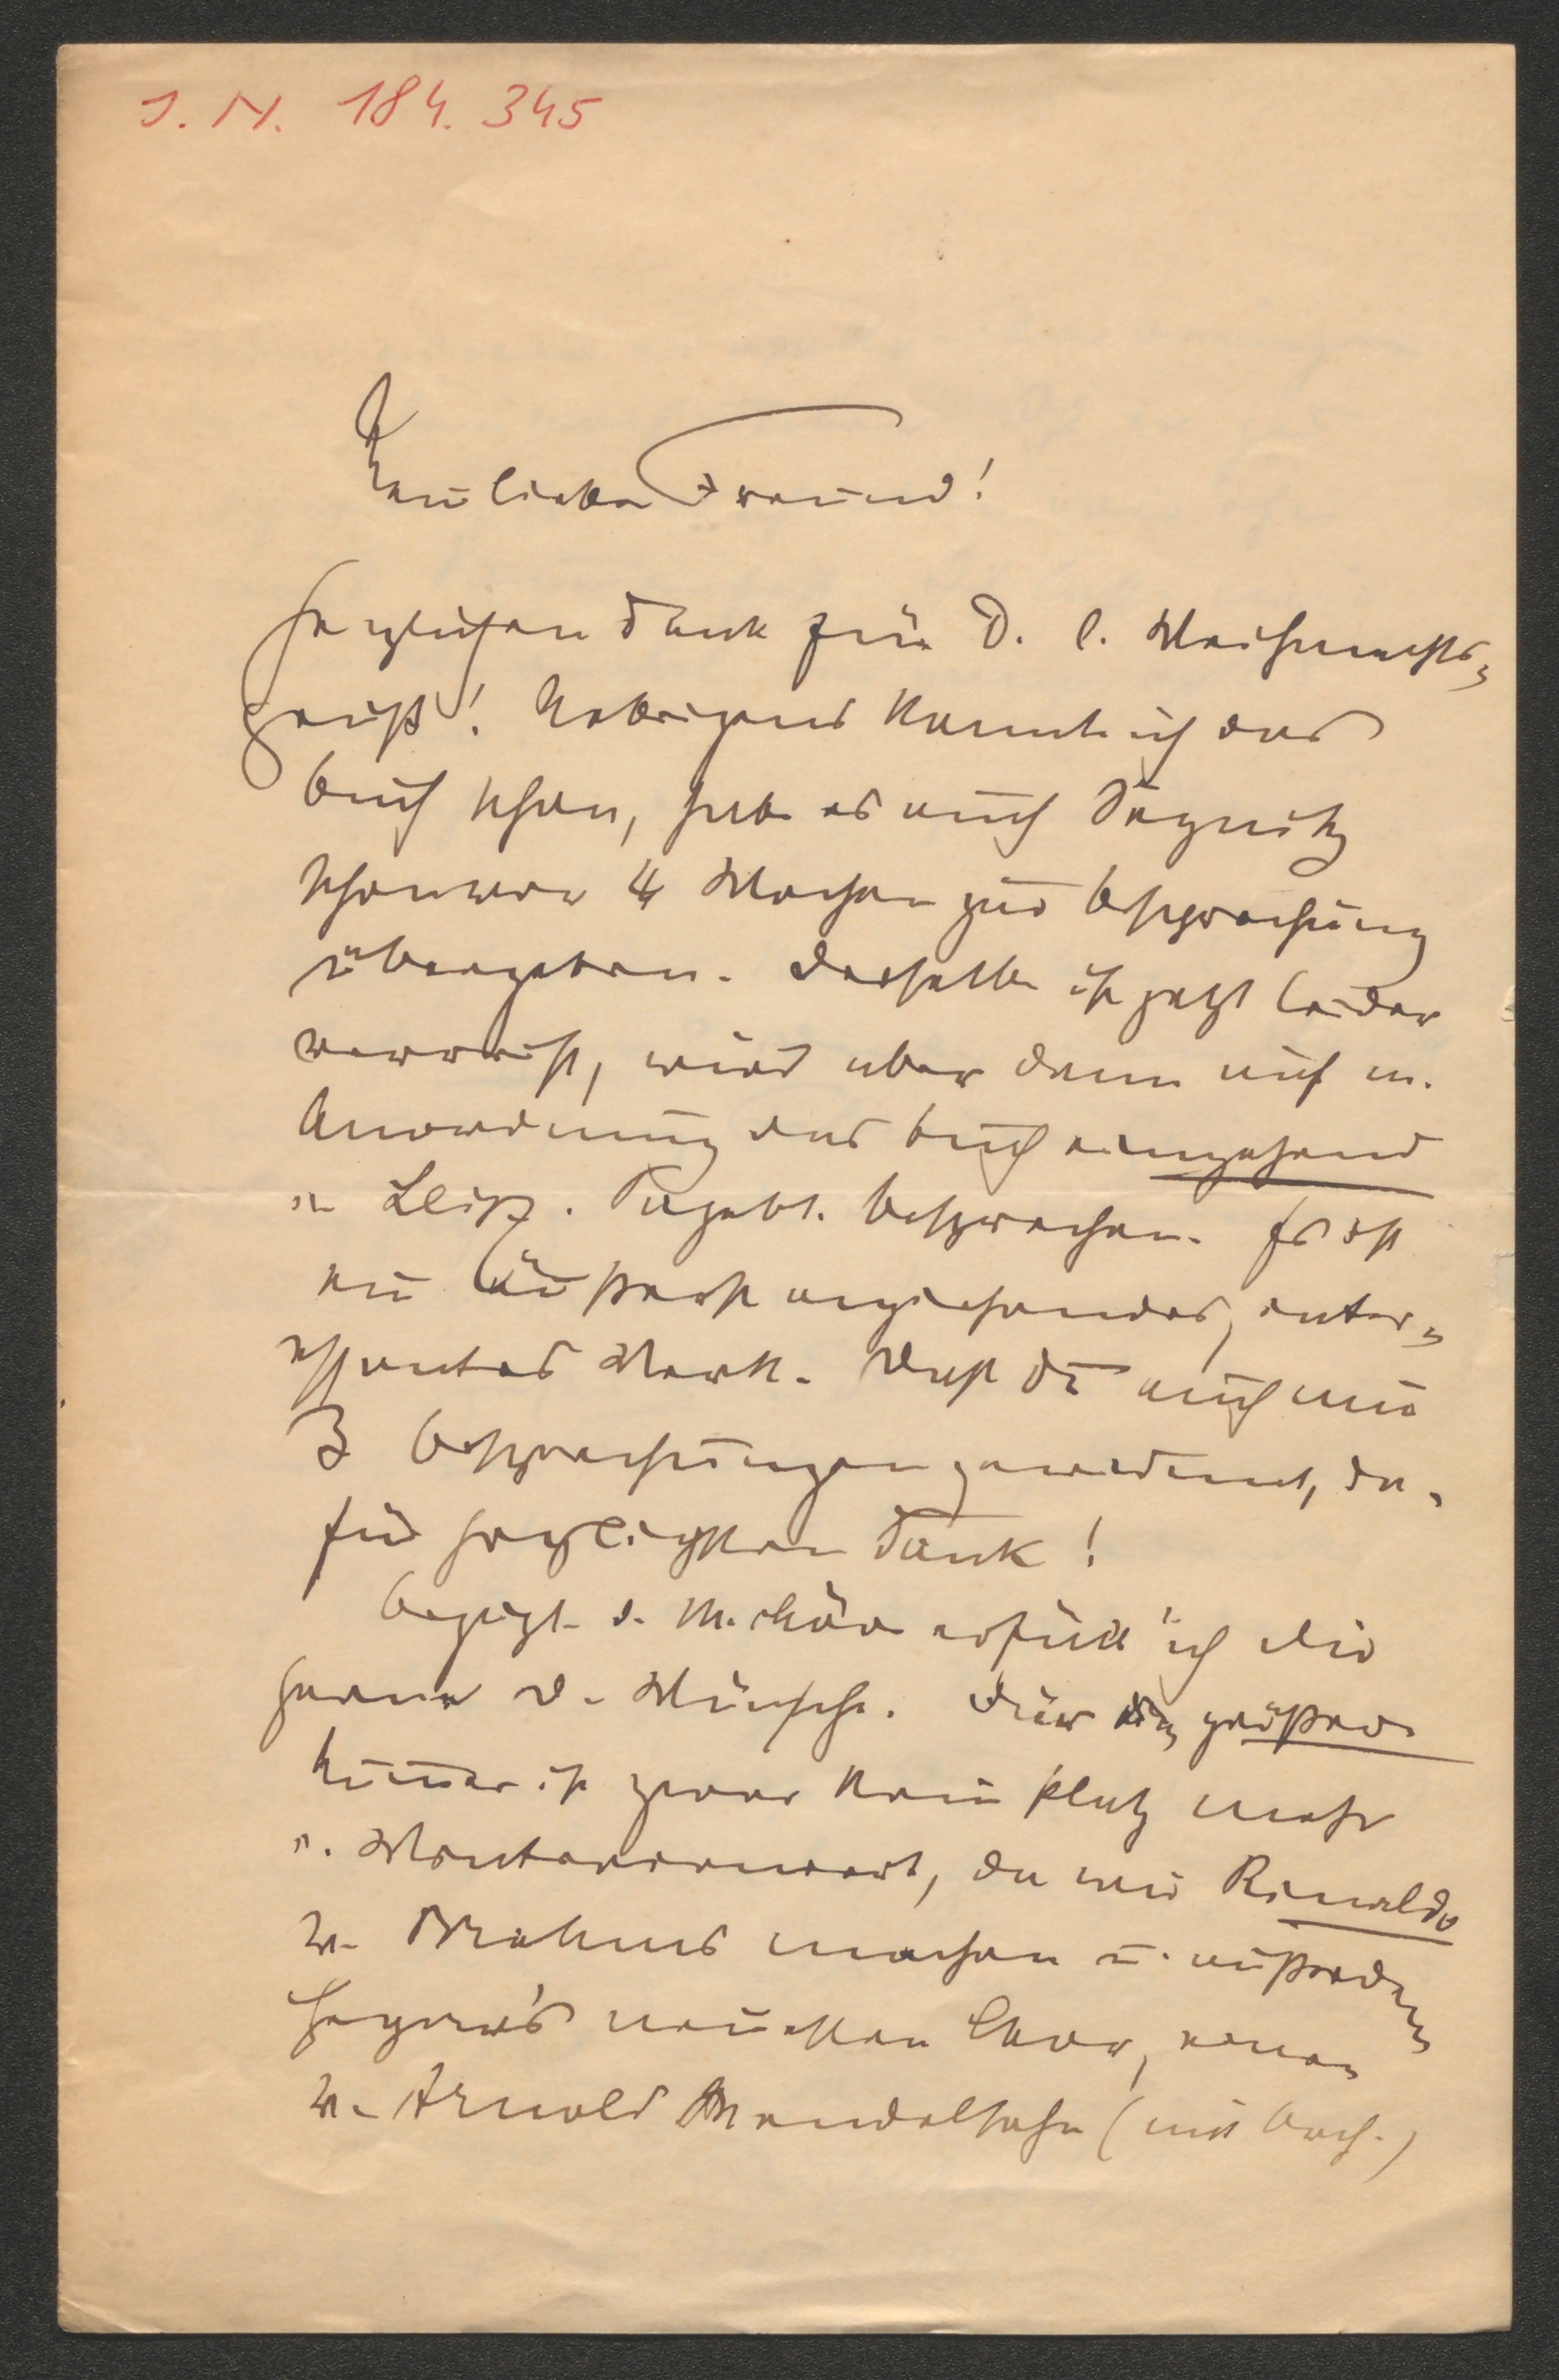 J. N. 184.345
Mein lieber Freund!
Herzlichen Dank für D. l. Weihnachts-
gruß! Uebrigens kannte ich das
Buch schon, habe es auch Segnitz
schon vor 4 Wochen zur Besprechung
übergeben. Derselbe ist jetzt leider
verreist, wird aber dann auf m.
Anordnung das Buch eingehend
in Leipz. Tagebl. besprechen. Es ist
ein äußerst anziehendes, inter-
essantes Werk. Daß Du auch mir
3 Besprechungen gewidmet, da-
für herzlichsten Dank!
Bezügl. d. M. Chöre erfüll ich Dir
gerne D. Wünsche. Für größere
ist zwar kein Platz mehr
i. Winterconcert, da wir Rinaldo
v. Brahms machen u. außerdem
Hegar's neuesten Chor, einen
v. Arnold Mendelssohn (mit Orch.)